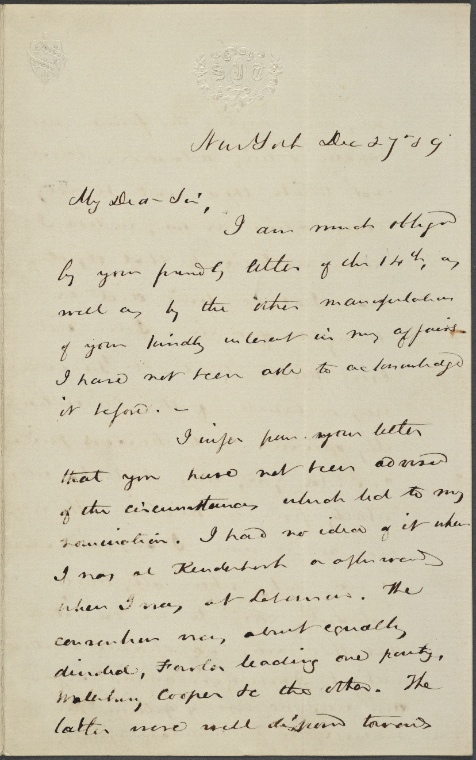 S J T
New York Dec 27th 59
My Dear Sir,
I am much obliged
by your friendly letter of the 14th, as
well as by the other manifestations
of your kindly interest in my affairs
I have not been able to acknowledge
it before. –
I infer from your letter
that you have not been advised
of the circumstances which led to my
nomination. I had no idea of it when
I was at Kinderhook or afterwards
when I was at Lebanon. The
convention was about equally
divided, Fowler leading one party,
Waterbury, Cooper &c the other. The
latter were well disposed towards